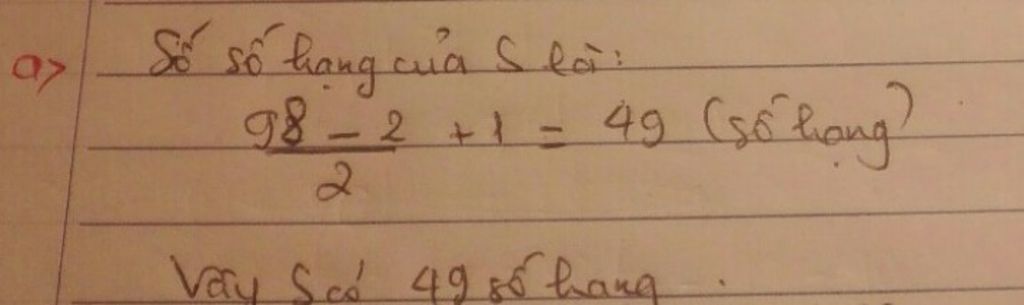 a> Số số hạng của S là:
98 - 2 / 2 + 1 = 49 (số hạng)
Vậy S có 49 số hạng.